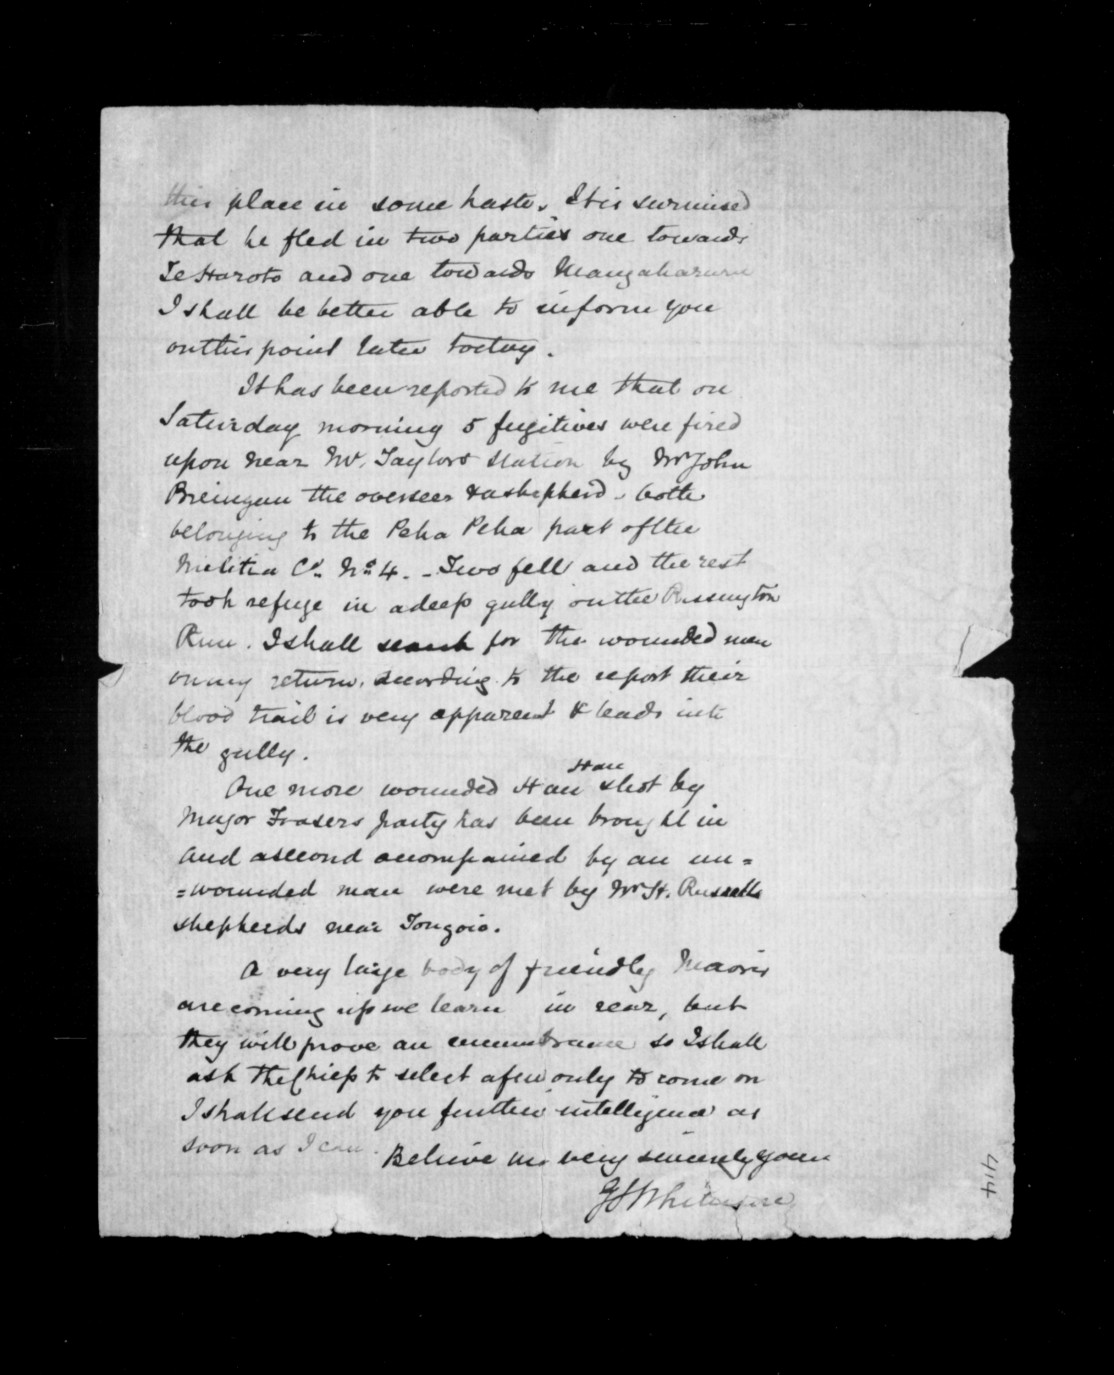 this place in some haste. It is surmised
that he fled in two parties one towards
Te Haroto and one towards Mangaharuru
I shall be better able to inform you
on this point later today.
It has been reported to me that on
Saturday morning 5 fugitives were fired
upon near Mr. Taylors station by Mr John
the overseer & a shepherd - both
belonging to the Peka Peka part of the
Militia Co. No. 4. - Two fell and the rest
took refuge in a deep gully on the Rissington
Run. I shall search for the wounded men
on my return, according to the report their
blood trail is very apparent & leads into
the gully.
One more wounded Hau Hau shot by
Major Frasers party has been brought in
and a second accompanied by an un=
=wounded man were met by Mr H. Russells
shepherds near Tongoio.
A very large body of friendly Maoris
are coming up we learn in rear, but
they will prove an encumbrance so I shall
ask the Chiefs to select a few only to come on
I shall send you further intelligence as
soon as I can. Believe me very sincerely yours
G S Whitmore
414